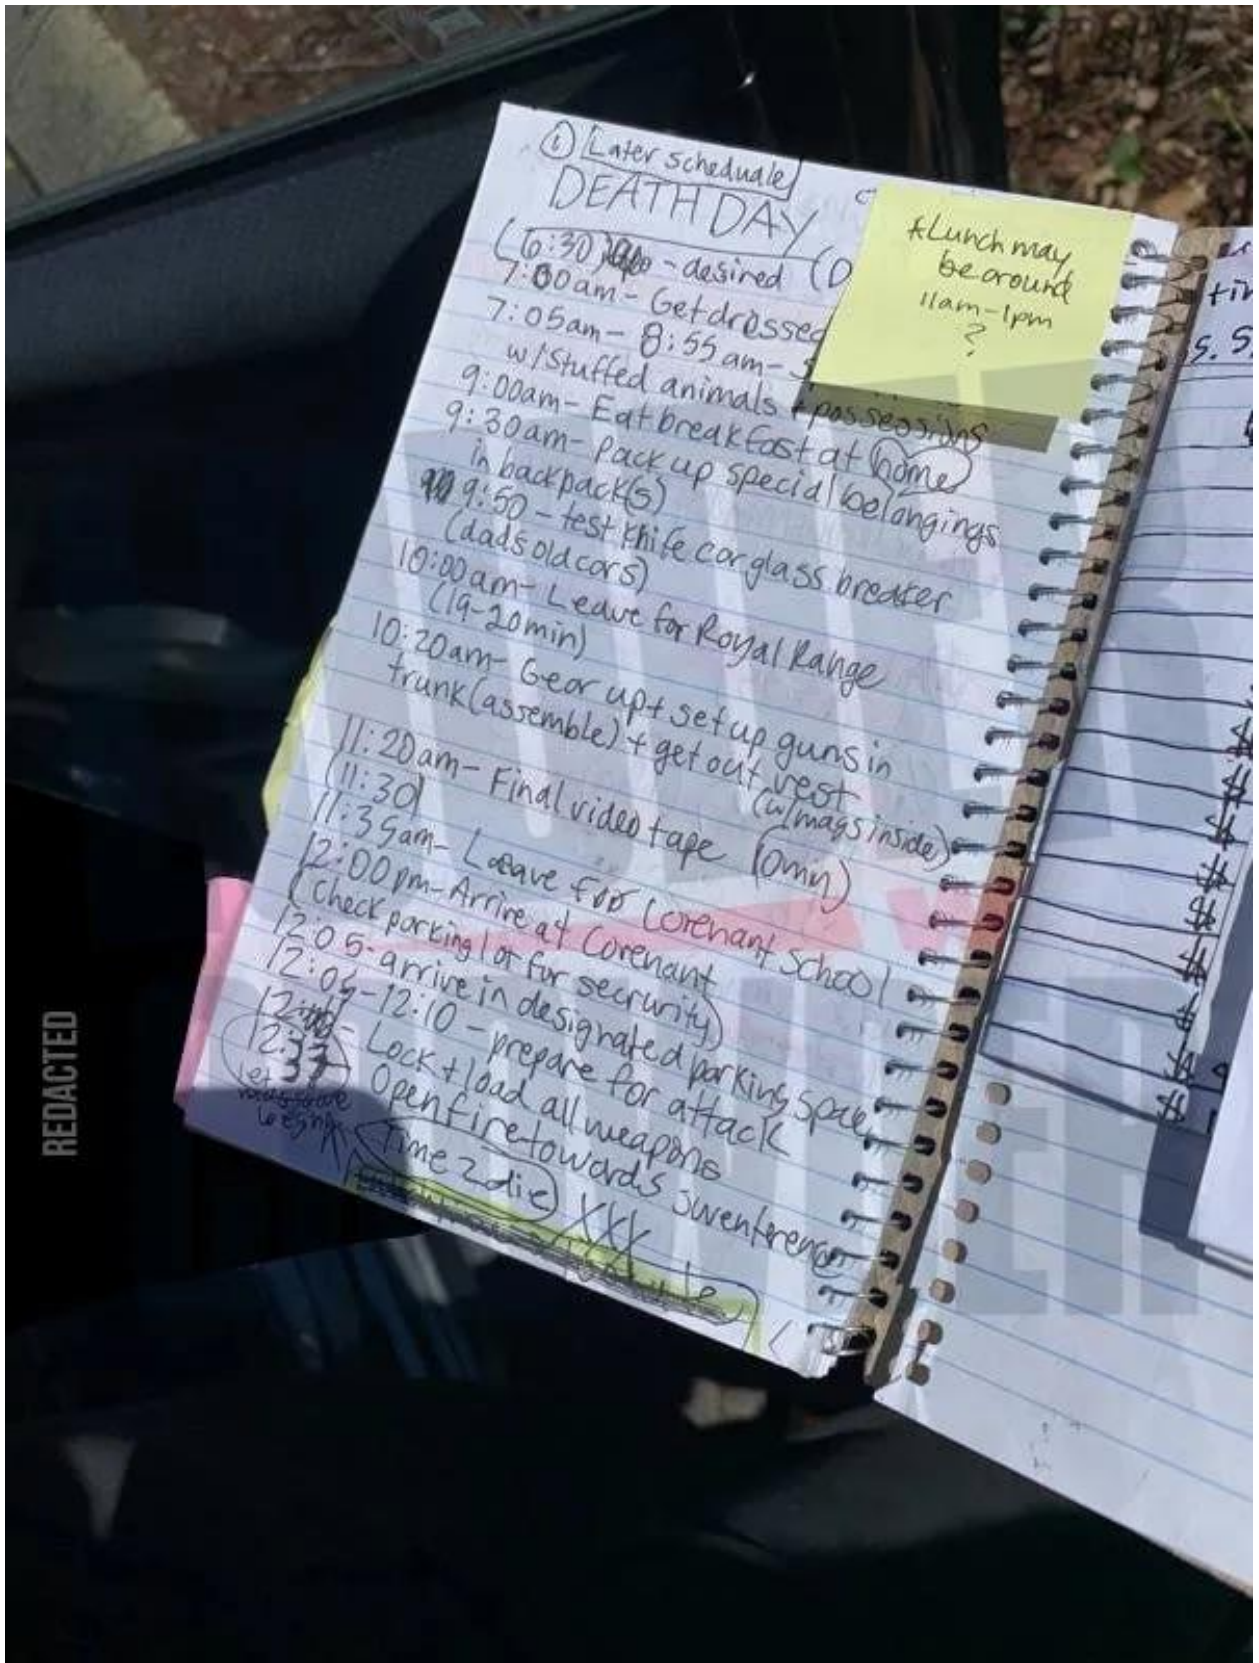 ① Later scheduale
DEATH DAY
(6:30) - desired (D
7:00am- Get dressed
7:05am- 8:55am- S
w/Stuffed animals + possessions
9:00am- Eat breakfast at home
9:30am- Pack up special belongings
in backpack(s)
9:50 - test knife car glass breaker
(dads old cars)
10:00am- Leave for Royal Range
(19-20min)
10:20am- Gear up + set up guns in
trunk (assemble) + get out vest
(w/mags inside)
11:20am- Final video tape (10min)
(11:30)
11:35am- Leave for Covenant School
12:00pm- Arrive at Covenant
(check parking lot for secrurity)
12:05- arrive in designated parking space
12:06-12:10 - prepare for attack
Lock + load all weapons
12:33 Open fire towards
Time 2 die XXX
*Lunch may
be around
11am-1pm
?
REDACTED